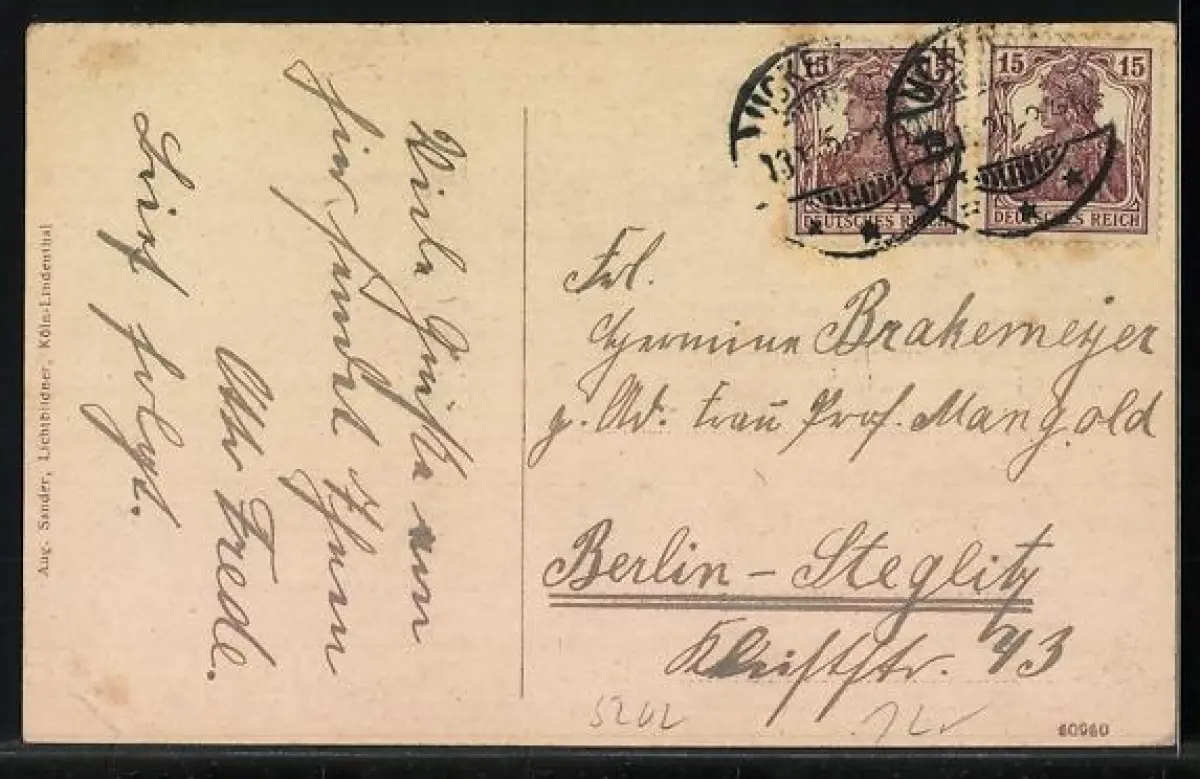 Viele Grüße von
hier sendet Ihnen
Otto Frede.
Brief folgt.
Aug. Sander, Lichtbildner, Köln-Lindenthal
15 15
DEUTSCHES REICH
15 15
DEUTSCHES REICH
Frl.
Hermine Brakemeyer
p. Ad. Frau Prof. Mangold
Berlin - Steglitz
Kleiststr. 43
5202
60960